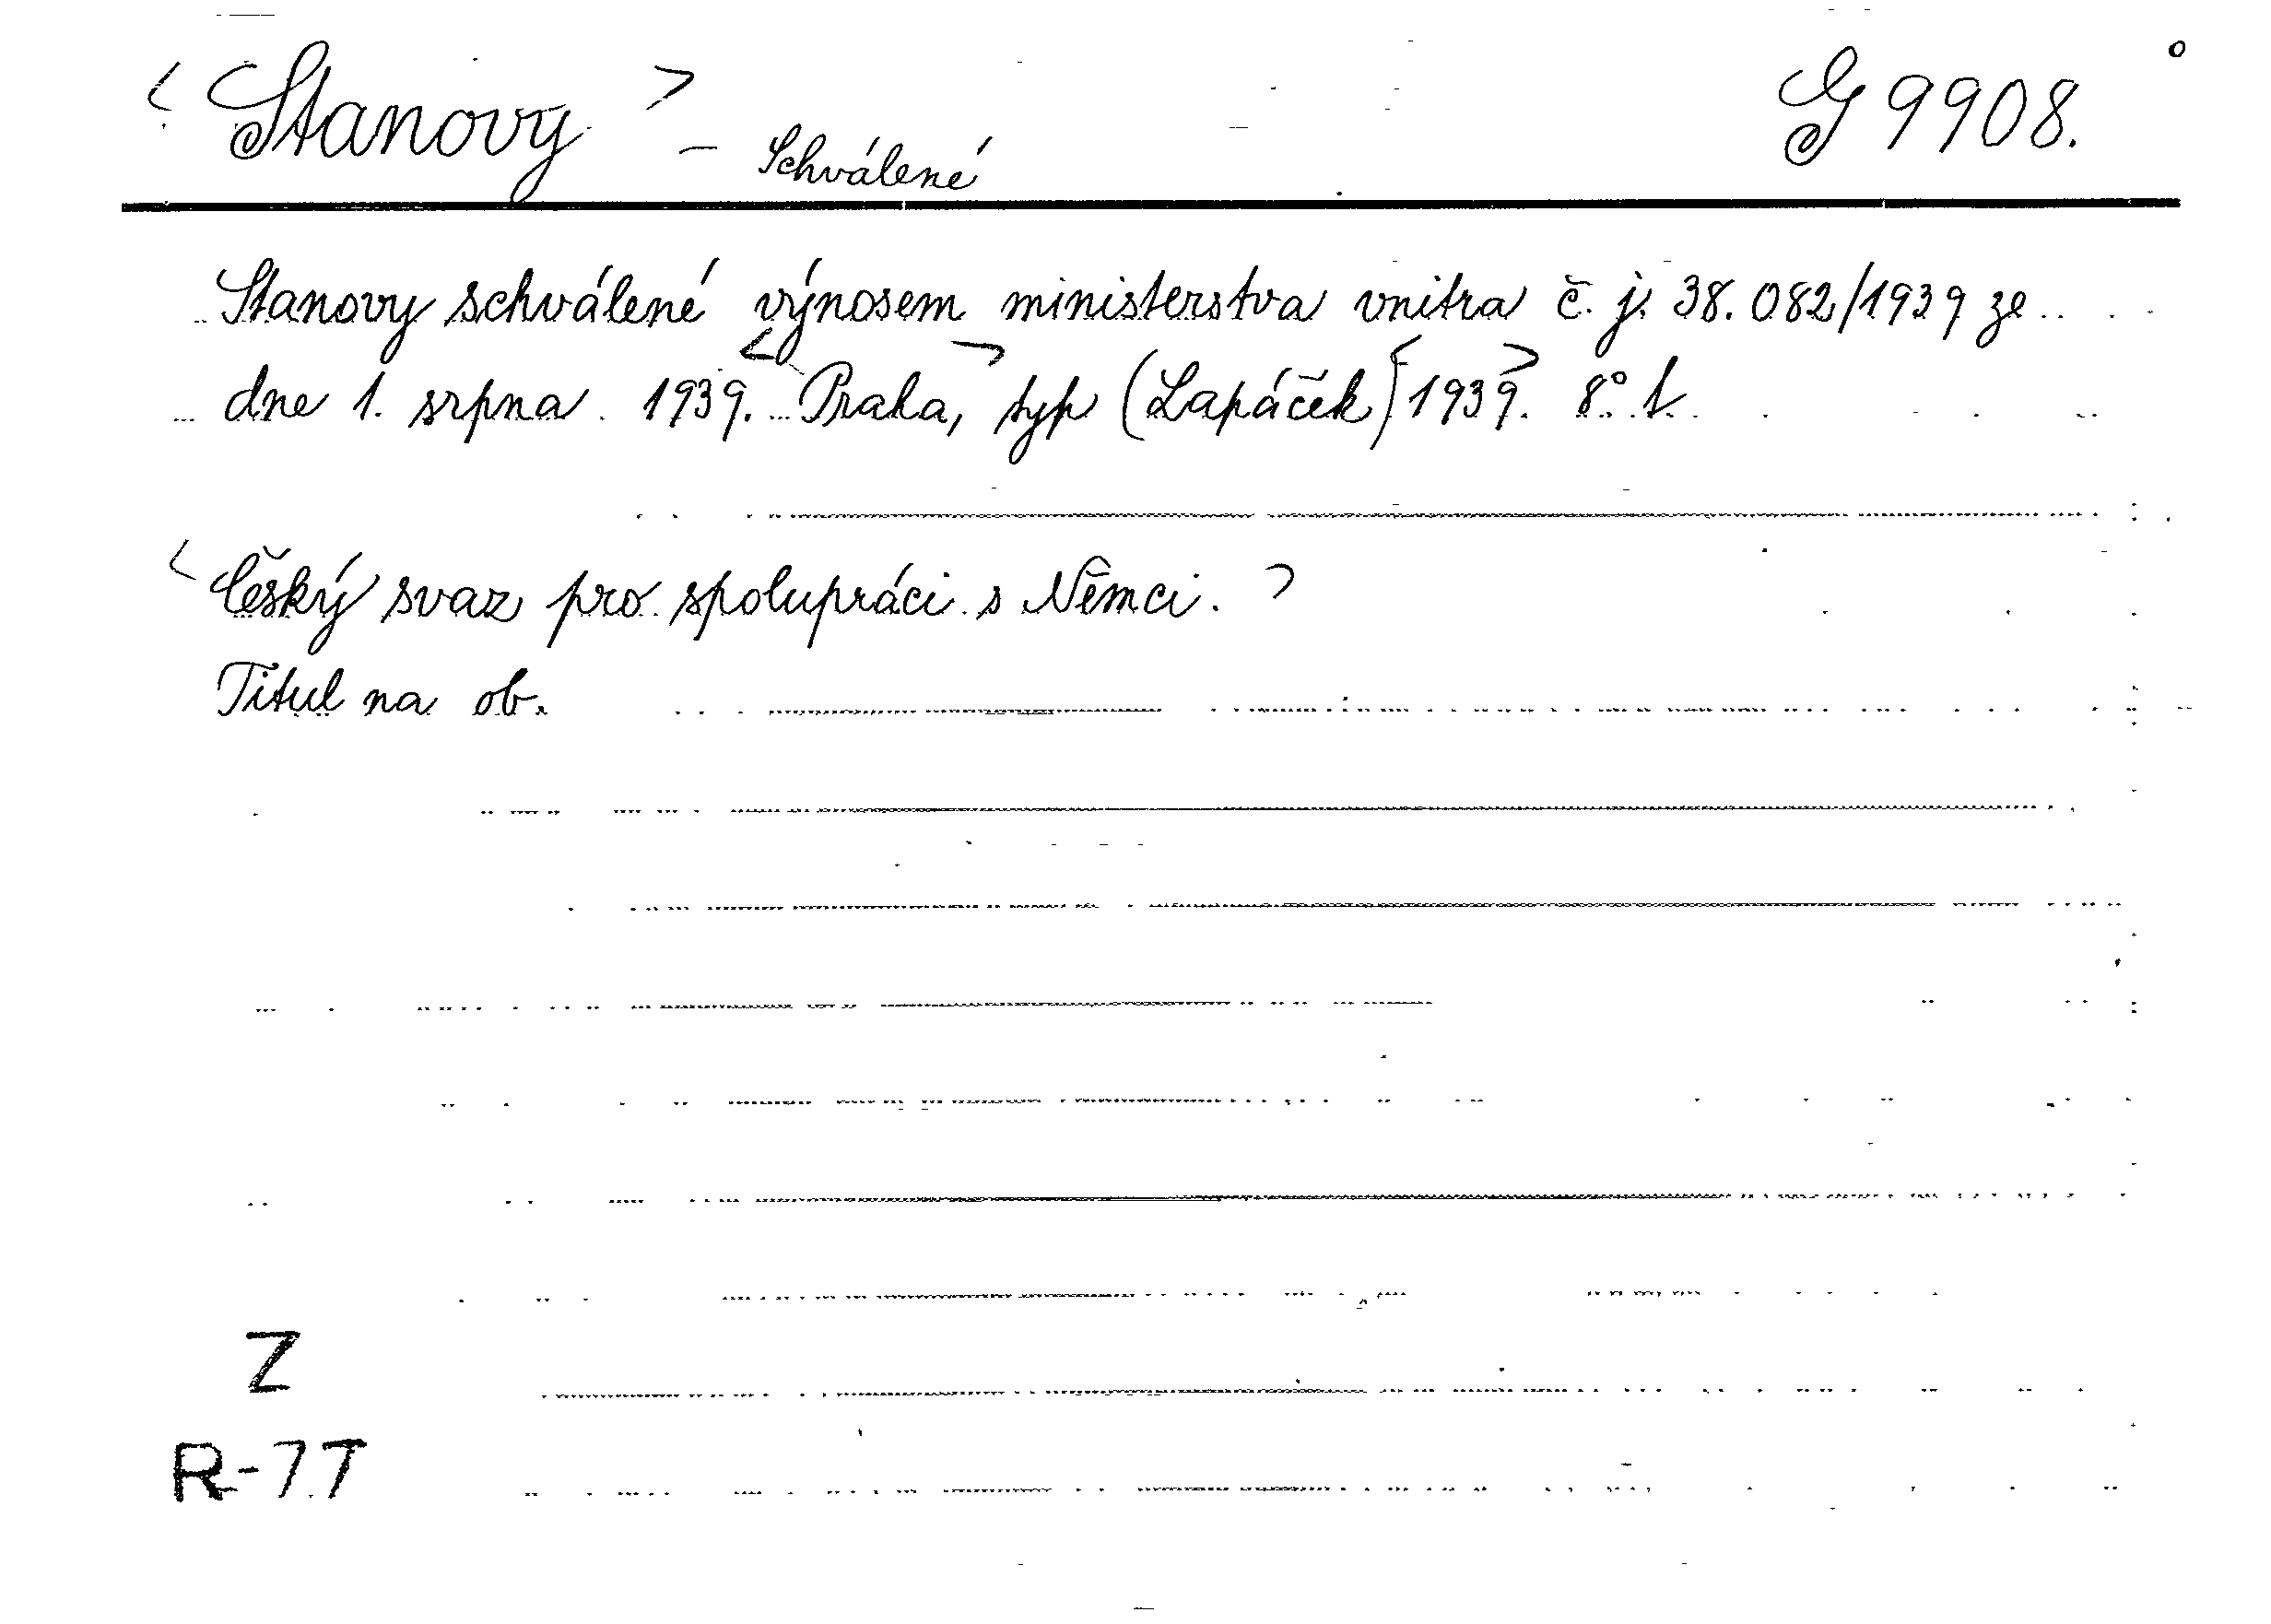 <Stanovy> - Schválené G 9908.
Stanovy schválené výnosem ministerstva vnitra č. j. 38.082/1939 ze
dne 1. srpna 1939. <Praha,> typ (Lapáček) <1939>. 8°.
<Český svaz pro spolupráci s Němci.>
Titul na ob.
Z
R-77